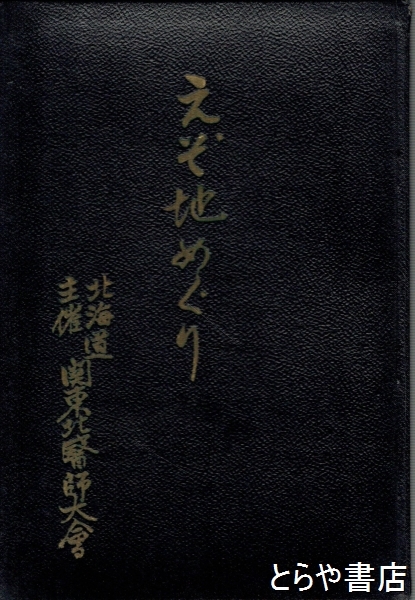 えぞ地めぐり
北海道
主催
関東北醫師大會
とらや書店